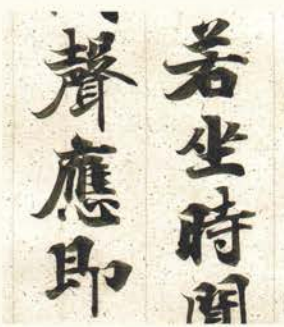 若坐時聞
聲應即